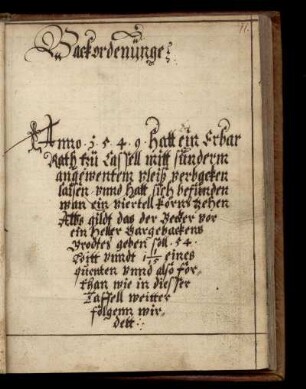 11.
Backordenunge:
Anno . 1 5 4 9 . Hatt ein Erbar
Rath tzu Cassell mitt sunderm
angewentem vleiß verbgeken
lassen vnnd hatt sich befunden
wan ein viertell korns zehen
Albs gildt das der Becker vor
ein Heller Bargebackens
Brodtes geben soll . 54 .
Lott vnndt 1 1/15 eines
quenten vnnd also för-
than wie in diesser
Taffell weitter
folgenn wir-
dett :